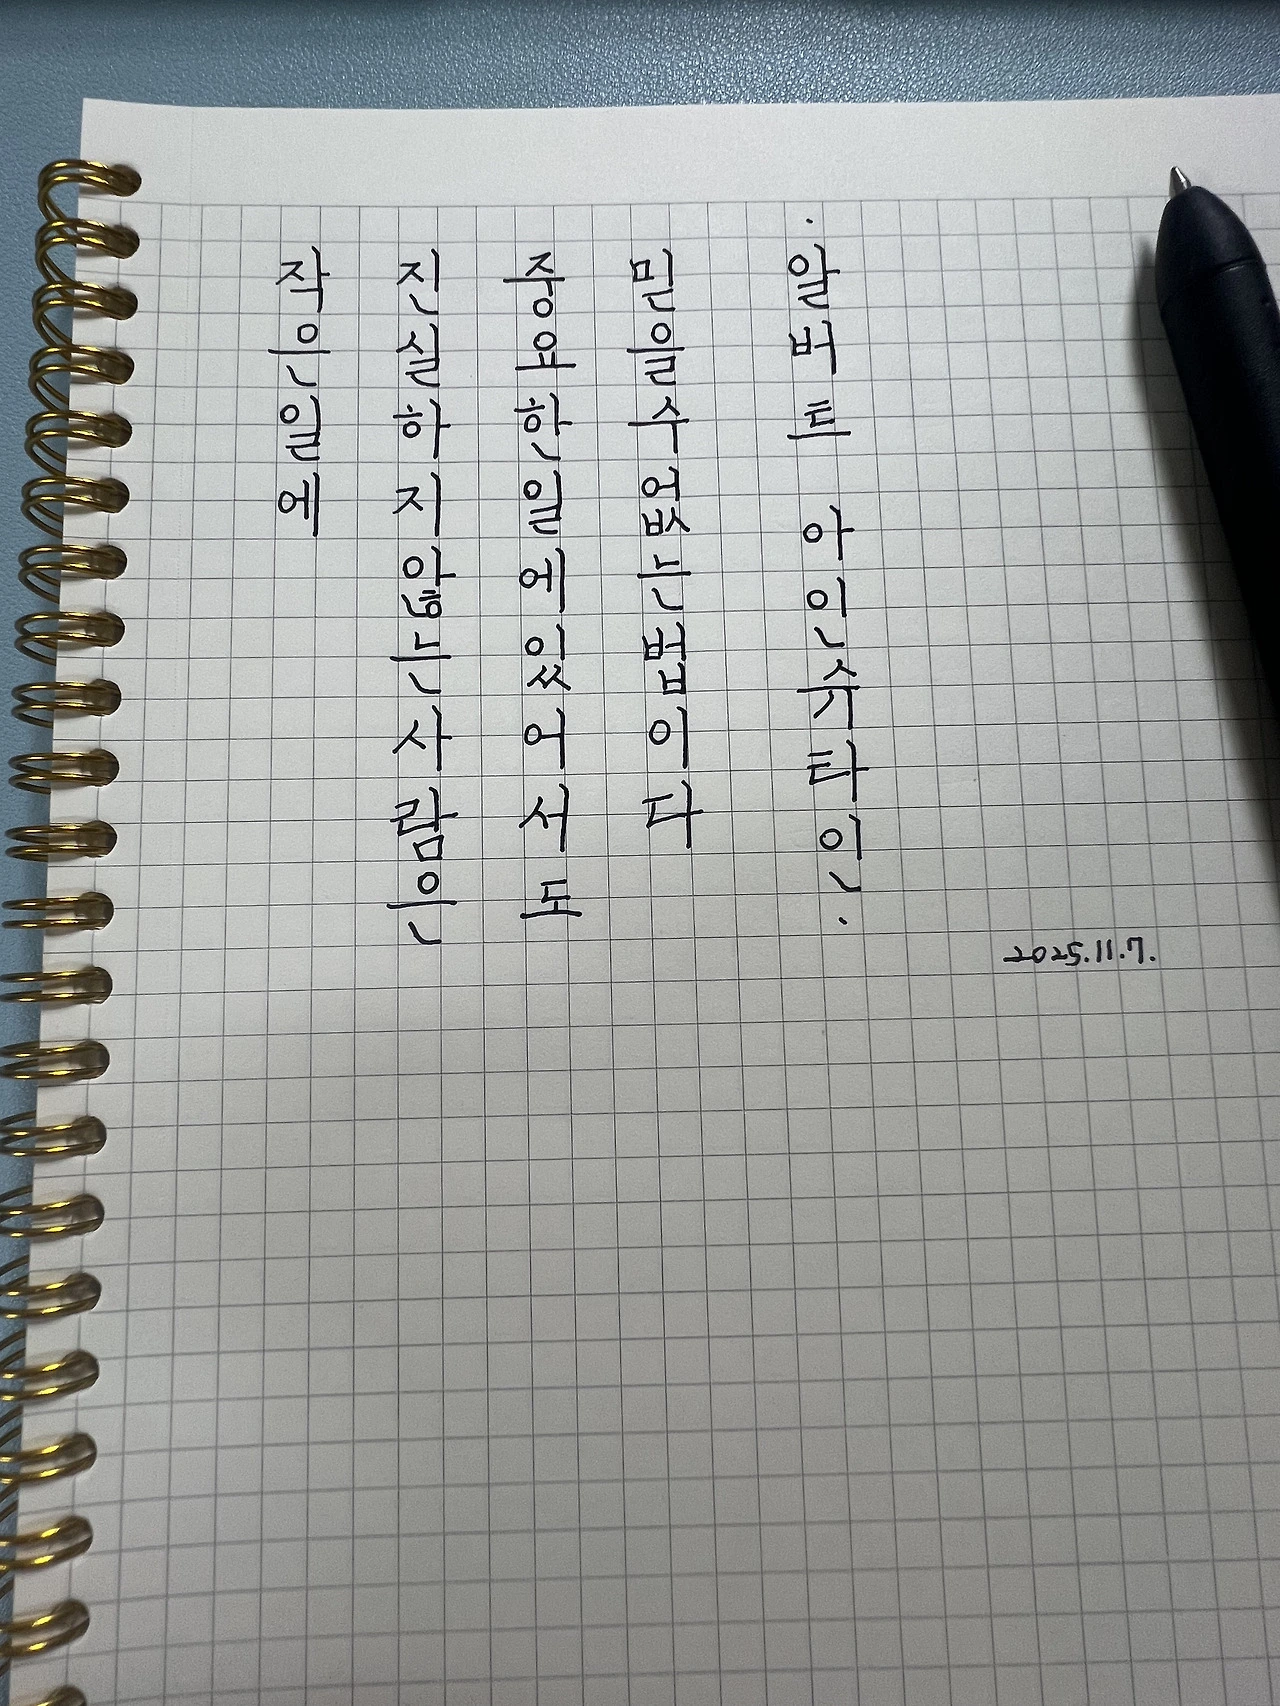 작은일에
진실하지않는사람은
중요한일에있어서도
믿을수없는법이다
·알버트 아인슈타인·
2025.11.7.